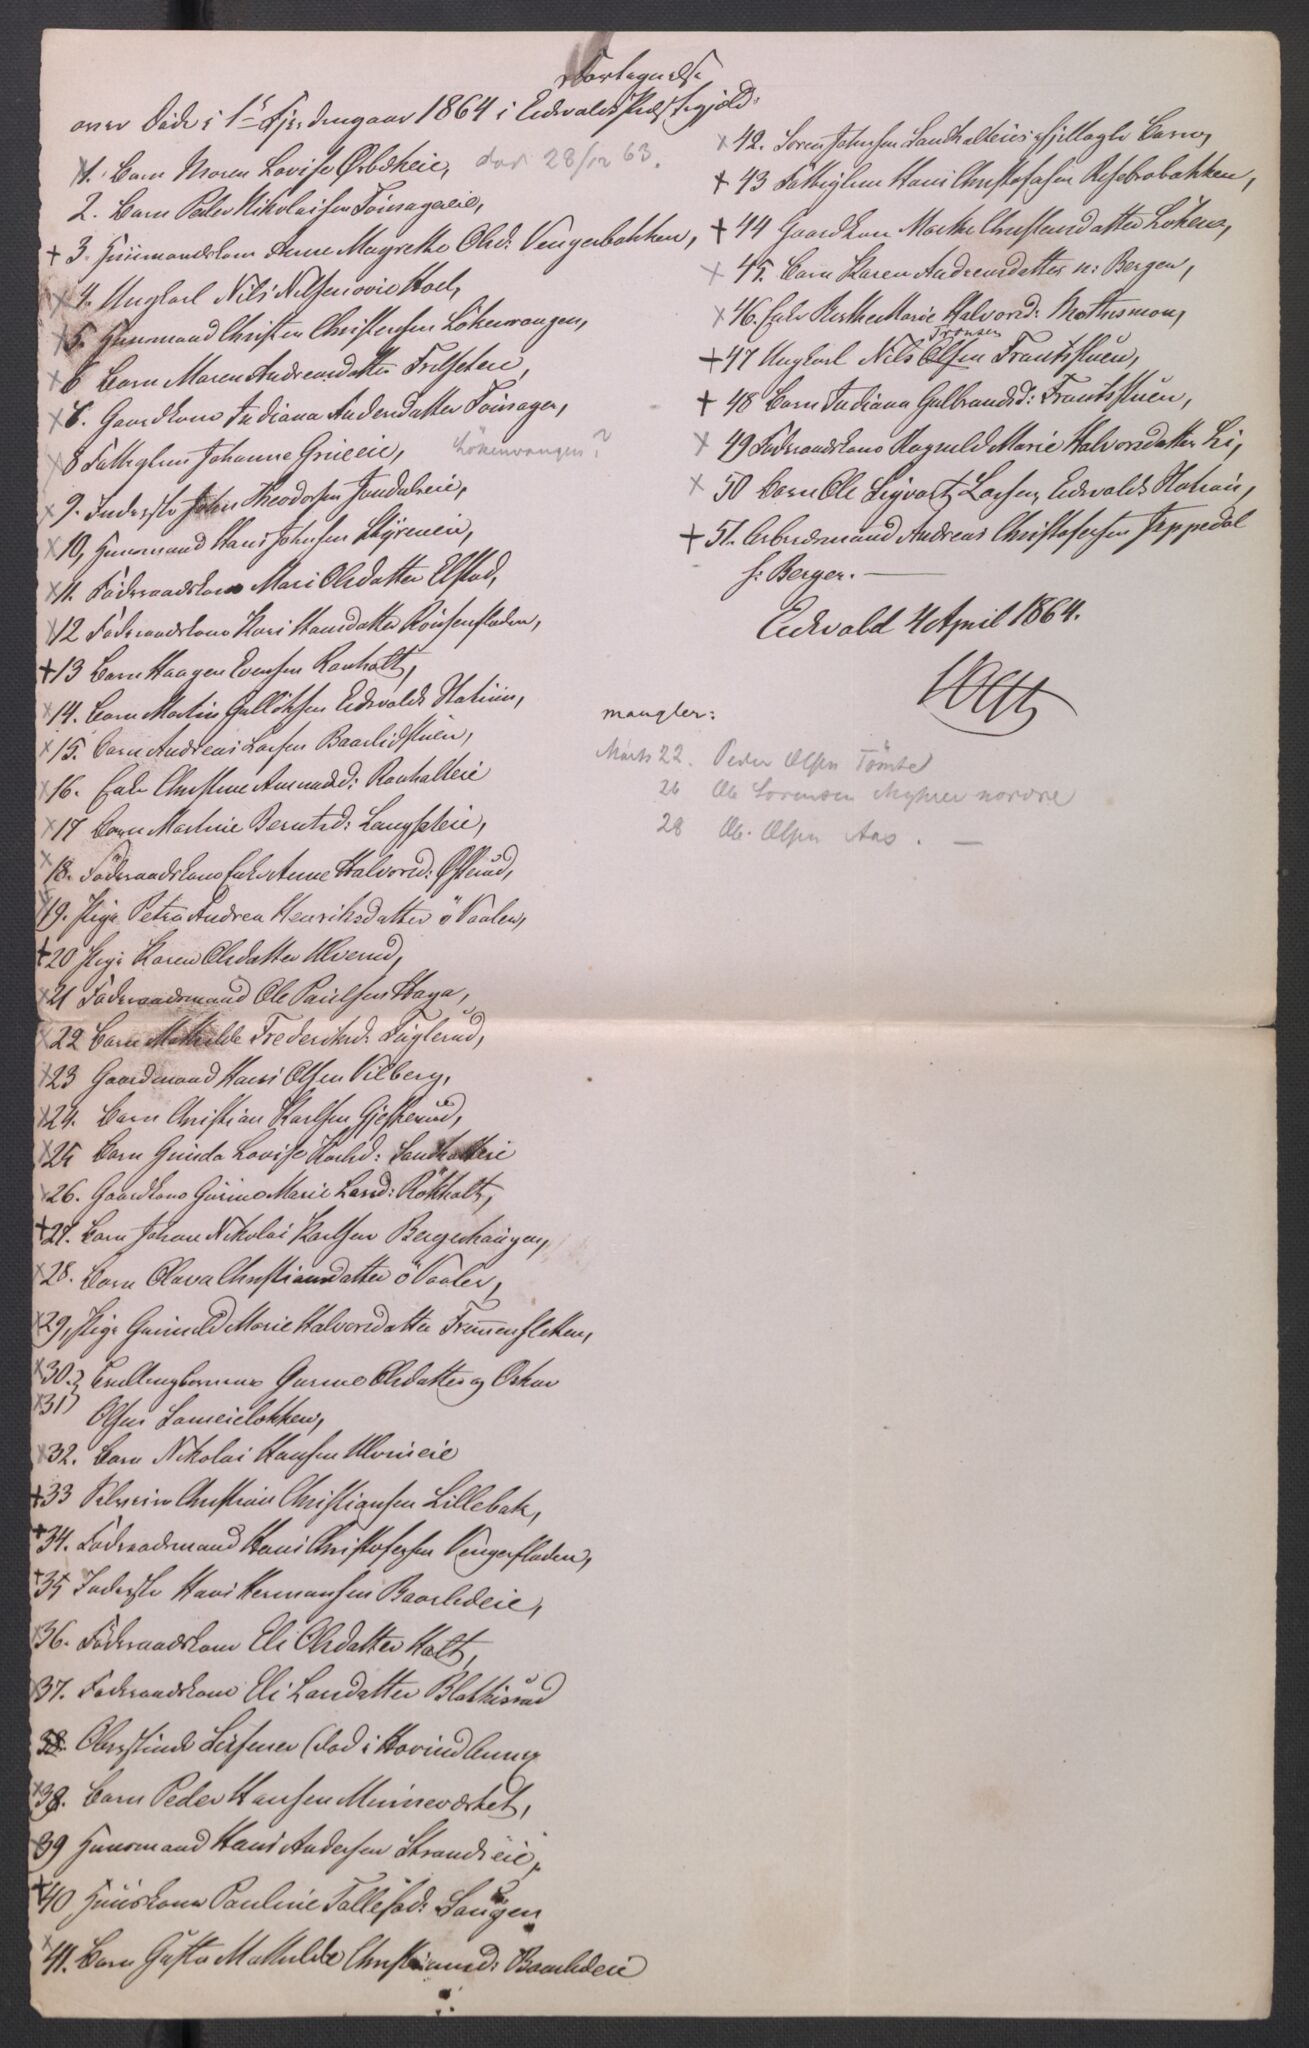 Fortegnelse
over Døde i 1ste Fjerdingaar 1864 i Eidsvolds Præstegjeld:
1. Barn Maren Lovise Ørbekeie, død 28/12 63.
2. Barn Peder Nikolaisen Tøisageneie,
3. Huusmandskone Anne Magrethe Olsd: Vengerbakken,
4. Ungkarl Nils Nilsen Hoel,
5. Huusmand Christen Christensen Lökenvangen,
6 Barn Maren Andreasdatter
7. Gaardkone Indiana Andersdatter Töisagen,
8 Fattiglem Johanne Lökenvangen?
9. Inderste John Theodorsen
10, Huusmand Hans Johnsen Styrieeie,
11. Föderaadskone Mari Olsdatter Elstad,
12 Föderaadskone Kari Hansdatter
13 Barn Haagen Evensen Raaholt,
14. Barn Martin Eidsvolds Station,
15. Barn Andreas Larsen Baarlidstuen,
16. Enke Christine Amundsd: Raaholteie
17 Barn Martine Berntsd: Langseteie,
18. Föderaadskone Enke Anne Halvorsd: Østerud,
19. Pige Petra Andrea Henriksdatter ö Vaalen,
20 Pige Karen Olsdatter Ulverud,
21 Föderaadsmand Ole Paulsen Haga,
22 Barn Mathilde Frederiksd: Fuglerud,
23 Gaardmand Hans Olsen Vilberg,
24. Barn Christian Karlsen Gjesterud,
25 Barn Gunda Lovise Karlsd: Sandholteie
26. Gaardkone Gurine Marie Larsd: Rökholt,
27. Barn Johan Nikolai Karlsen Bergerhaugen,
28. Barn Olava Christiansdatter ö Vaalen,
29, Pige Gunild Marie Halvorsdatter
30. } Tvillingbørnene Gurine Olsdatter og Oskar
31 } Olsen
32. Barn Nikolai Hansen
33 Christian Christiansen Lillebæk,
34. Föderaadsmand Hans Christofersen Vengerfladen,
35 Inderste Hans Hermansen Baarlideie,
36. Föderaadskone Eli Olsdatter Holt,
37. Föderaadskone Eli Larsdatter
38. (død i Hovind Annex
38. Barn Peder Hansen Minneværket,
39 Huusmand Hans Andersen Strandeeie,
40 Huuskone Pauline Tollefsd: Haugen
41. Barn Gusta Mathilde Christiansd: Baarlideie
42. Søren Johnsen Sandholteies Barn,
43 Fattiglem Hans Christofersen
44 Gaardkone Marthe Christensdatter Lökens,
45. Barn Karen Andreasdatter n: Bergen,
46. Enke Berthe Marie Halvorsd: Mathismoen,
Frantsen
47 Ungkarl Nils Olsen Frantsstuen,
48 Barn Indiana Gulbrandsd: Frantsstuen,
49 Föderaadskone Ragnild Marie Halvorsdatter Li,
50 Barn Ole Sigvart Larsen, Eidsvolds Station,
51. Arbeidsmand Andreas Christofersen Jeppedal
s: Berger.
Eidsvold 4 April 1864.
mangler:
Marts 22. Peder Olsen Tömte
26 Ole Sorensen Myhrer nordre
28 Ole Olsen Aas. —